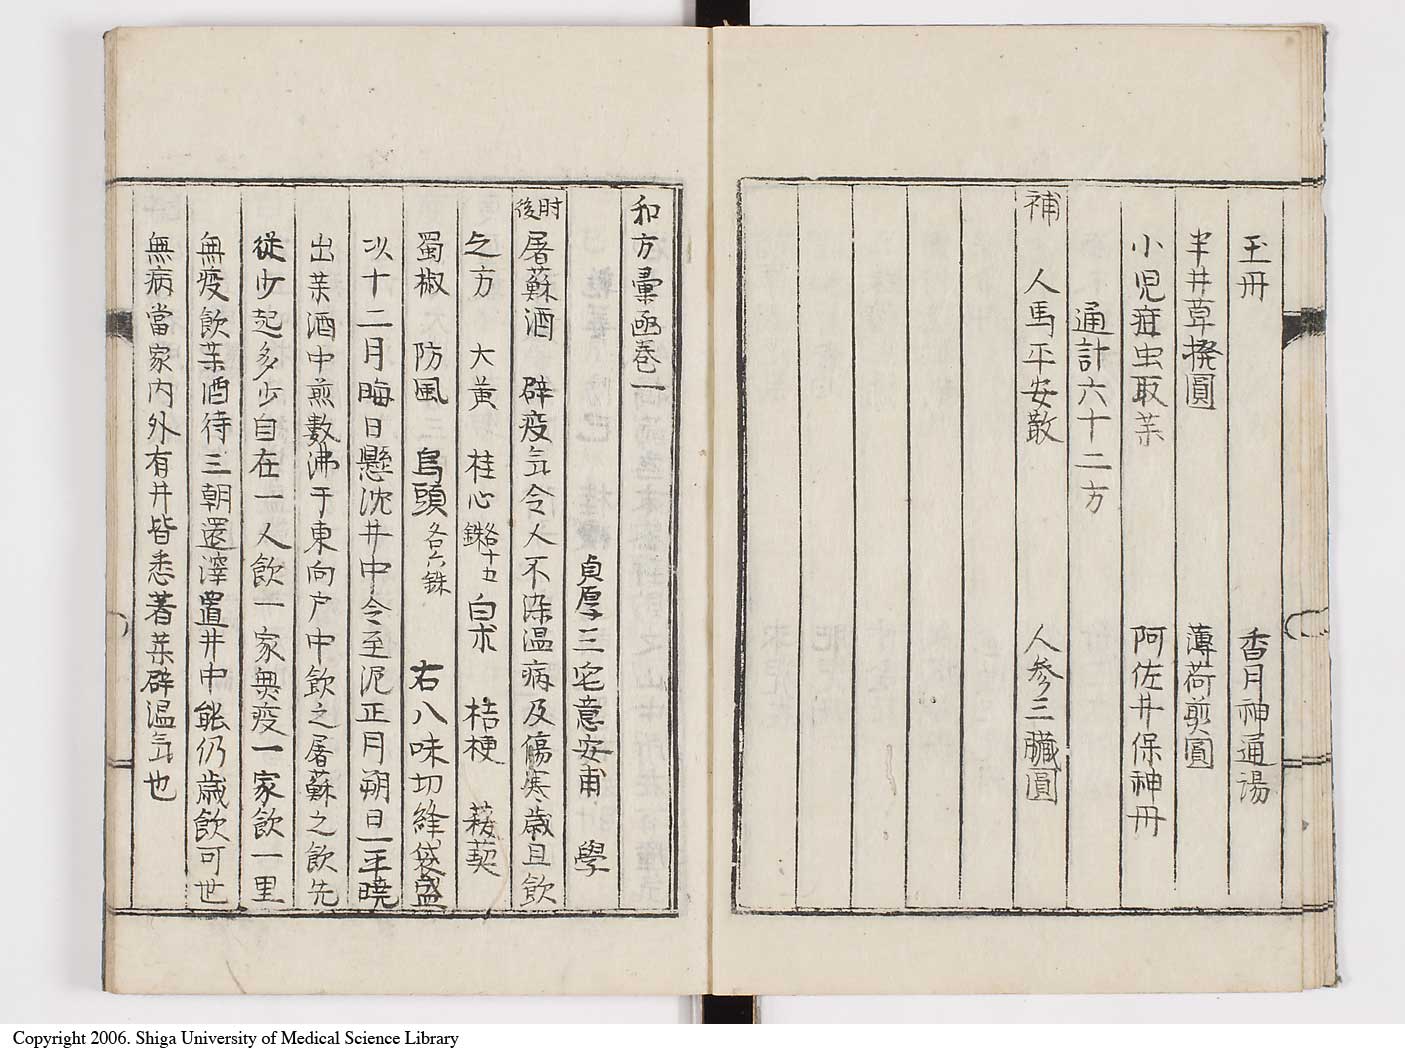 玉冊 香月神通湯
半井草撥圓 薄荷煎圓
小児疳虫取薬 阿佐井保神冊
通計六十二方
補 人馬平安散 人参三臓圓
和方彙函巻一
貞厚三宅意安甫 學
肘後 屠蘇酒 辟疫气令人不染温病及傷寒歳旦飲
之方 大黄 桂心各十五銖 白朮 桔梗 菝葜
蜀椒 防風 烏頭各六銖 右八味切絳袋盛
以十二月晦日懸沈井中令至泥正月朔日平暁
出薬酒中煎數沸于東向户中飲之屠蘇之飲先
從少起多少自在一人飲一家無疫一家飲一里
無疫飲薬酒待三朝還滓置井中能仍歳飲可世
無病當家内外有井皆悉著薬辟温气也
Copyright 2006. Shiga University of Medical Science Library